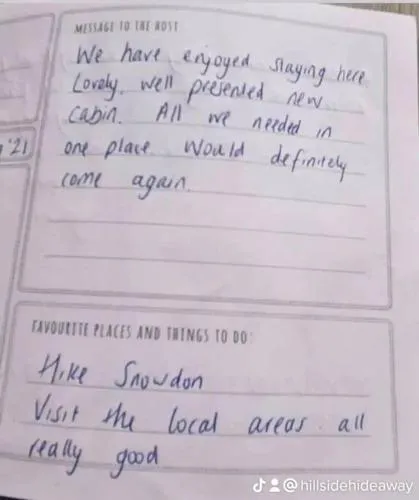 MESSAGE TO THE HOST
We have enjoyed staying here
Lovely, well presented new
cabin. All we needed in
'21
one place. Would definitely
come again.
FAVOURITE PLACES AND THINGS TO DO:
Hike Snowdon
Visit the local areas all
really good
@hillsidehideaway